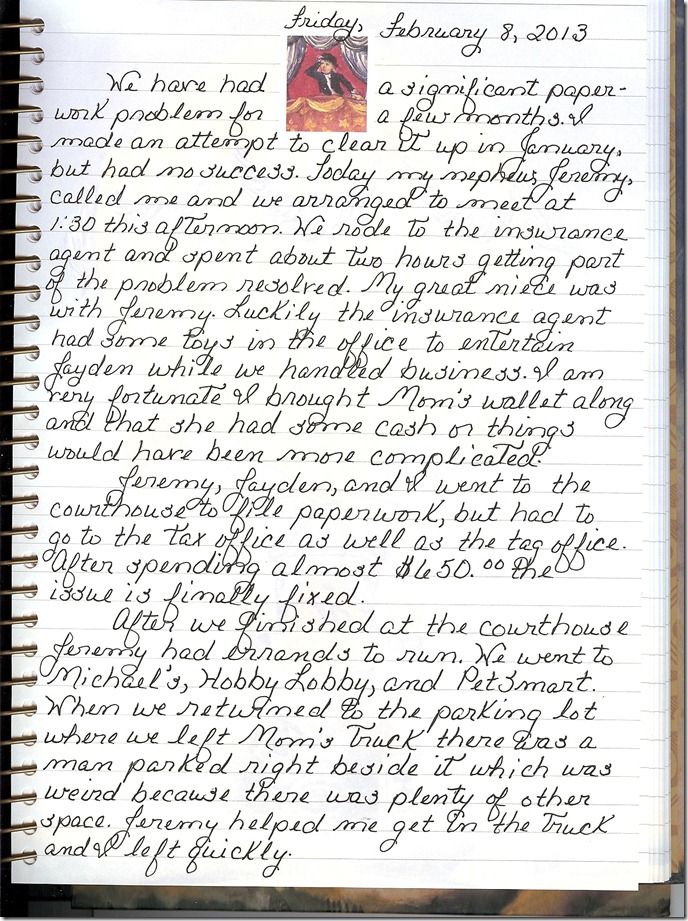 Friday, February 8, 2013
We have had a significant paper-
work problem for a few months. I
made an attempt to clear it up in January,
but had no success. Today my nephew, Jeremy,
called me and we arranged to meet at
1:30 this afternoon. We rode to the insurance
agent and spent about two hours getting part
of the problem resolved. My great niece was
with Jeremy. Luckily the insurance agent
had some toys in the office to entertain
Jayden while we handled business. I am
very fortunate I brought Mom's wallet along
and that she had some cash or things
would have been more complicated.
Jeremy, Jayden, and I went to the
courthouse to file paperwork, but had to
go to the tax office as well as the tag office.
After spending almost $650.00 the
issue is finally fixed.
After we finished at the courthouse
Jeremy had errands to run. We went to
Michael's, Hobby Lobby, and PetSmart.
When we returned to the parking lot
where we left Mom's truck there was a
man parked right beside it which was
weird because there was plenty of other
space. Jeremy helped me get in the truck
and I left quickly.